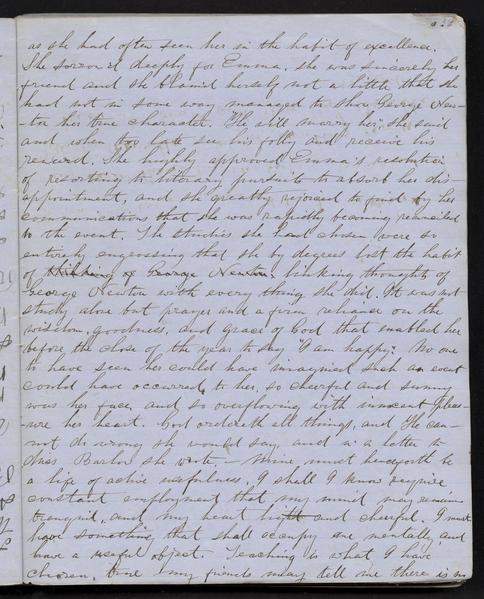 as she had often seen her in the habit of excellence.
She sorrow'd deeply for Emma, she was sincerely her
friend and she blamed herself not a little that she
had not in some way managed to show George New-
ton her true character. "He will marry her," she said
and when too late see his folly and receive his
reward. She highly approved Emma's resolution
of resorting to literary pursuits to absorb her dis-
appointment, and she greatly rejoiced to find by her
communications that she was rapidly becoming reconciled
to the event. The studies she had chosen were so
entirely engrossing that she by degrees lost the habit
of thinking of George Newton, linking thoughts of
George Newton with every thing she did. It was not
study alone but prayer and a firm reliance on the
wisdom, goodness, and grace of God that enabled her
before the close of the year to say "I am happy." No one
to have seen her could have imagined such an event
could have occurred to her, so cheerful and sunny
was her face, and so overflowing with innocent pleas-
ure her heart. God ordereth all things, and He can-
not do wrong she would say, and in a letter to
Miss Barlow she wrote, — Mine must henceforth be
a life of active usefulness, I shall I know require
constant employment that my mind may remain
tranquil, and my heart light and cheerful. I must
have something that shall occupy me mentally, and
have a useful object. Teaching is what I have
chosen. True my friends may tell me there is no